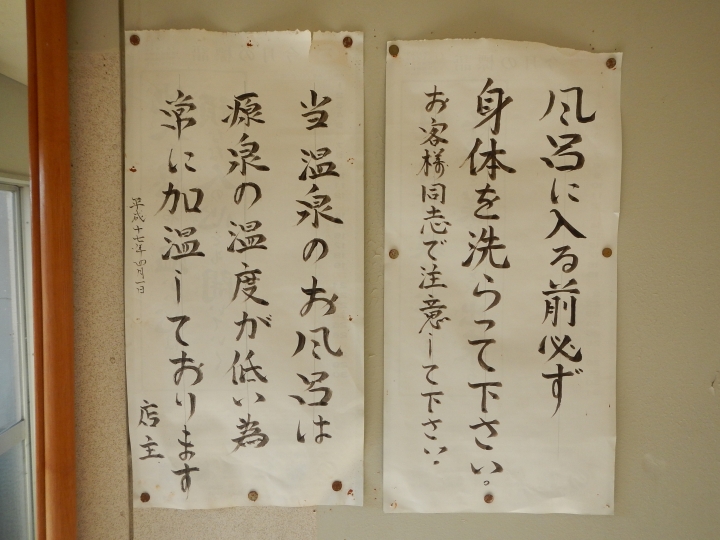 風呂に入る前必ず
身体を洗らって下さい。
お客様同志で注意して下さい.
当温泉のお風呂は
源泉の温度が低い為
常に加温しております
平成十七年四月一日
店主